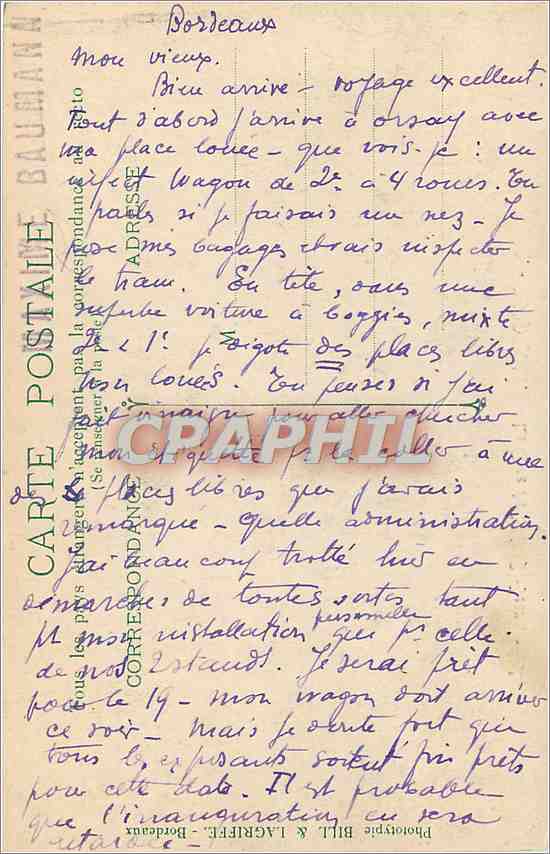 Bordeaux
Mon vieux.
Bien arrivé - voyage excellent.
Tout d'abord j'arrive à Orsay avec
ma place louée - que vois-je : un
infect wagon de 2e à 4 roues. Tu
parles si je faisais un nez - Je
pose mes bagages et vais inspecter
le train. En tête, dans une
superbe voiture à boggies, mixte
2e & 1e je zigote des places libres
non louées. Tu penses si j'ai
fait vinaigre pour aller chercher
mon étiquette pr la coller à une
des places libres que j'avais
remarqué - Quelle administration.
J'ai beaucoup trotté hier en
démarches de toutes sortes tant
pr mon installation personnelle que pr celle
de nos 2 stands. Je serai prêt
pour le 19 - mon wagon doit arriver
ce soir - mais je doute fort que
tous les exposants soient fin prêts
pour cette date. Il est probable
que l'inauguration en sera
retardée -
CARTE POSTALE
Tous les pays étrangers n'acceptent pas la correspondance au recto
(Se renseigner à la poste)
CORRESPONDANCE
ADRESSE
M
BAUMANN
CPAPHIL.com
Phototypie BILL. & LAGRIFFE. - Bordeaux